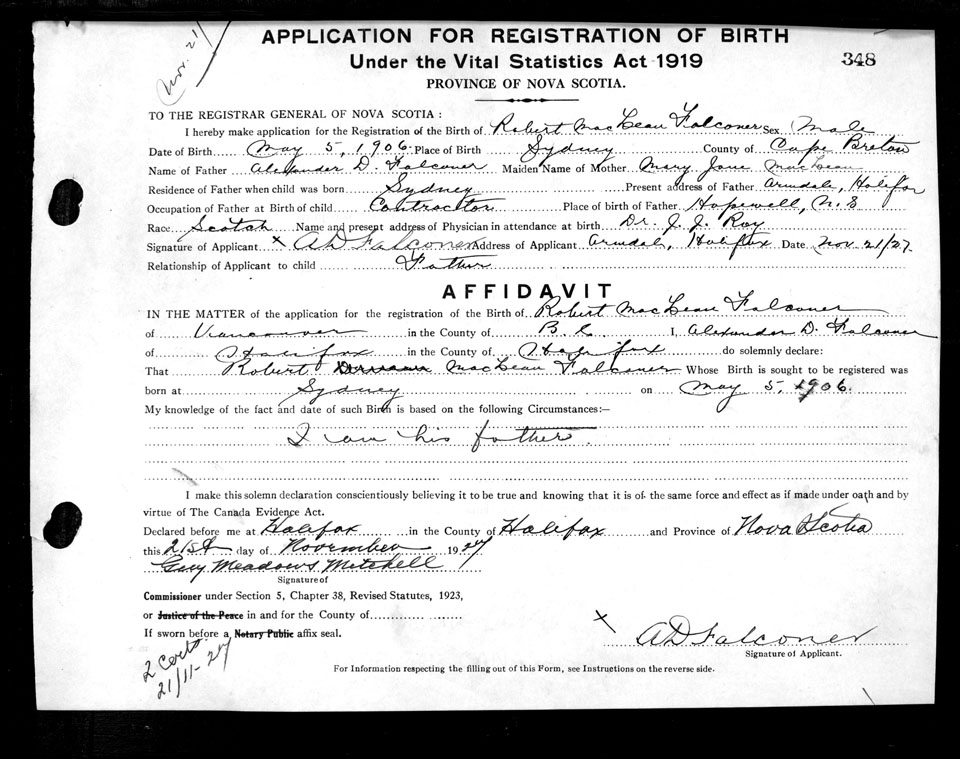 Nov. 21/
APPLICATION FOR REGISTRATION OF BIRTH
Under the Vital Statistics Act 1919
348
PROVINCE OF NOVA SCOTIA.
TO THE REGISTRAR GENERAL OF NOVA SCOTIA :
I hereby make application for the Registration of the Birth of Robert MacLean Falconer Sex Male
Date of Birth May 5, 1906. Place of Birth Sydney County of Cape Breton
Name of Father Alexander D. Falconer Maiden Name of Mother Mary Jane MacLean
Residence of Father when child was born Sydney Present address of Father Armdale, Halifax
Occupation of Father at Birth of child Contractor Place of birth of Father Hopewell, N.S
Race Scotch Name and present address of Physician in attendance at birth Dr. J. J. Roy
Signature of Applicant x AD Falconer Address of Applicant Armdale, Halifax Date Nov. 21/27.
Relationship of Applicant to child Father
AFFIDAVIT
IN THE MATTER of the application for the registration of the Birth of Robert MacLean Falconer
of Vancouver in the County of B.C I, Alexander D. Falconer
of Halifax in the County of Halifax do solemnly declare:
That Robert MacLean Falconer Whose Birth is sought to be registered was
born at Sydney on May 5, 1906.
My knowledge of the fact and date of such Birth is based on the following Circumstances:—
I am his father.
I make this solemn declaration conscientiously believing it to be true and knowing that it is of the same force and effect as if made under oath and by
virtue of The Canada Evidence Act.
Declared before me at Halifax in the County of Halifax and Province of Nova Scotia
this 21st day of November 1927
Guy Meadows Mitchell
Signature of
Commissioner under Section 5, Chapter 38, Revised Statutes, 1923,
or Justice of the Peace in and for the County of
If sworn before a Notary Public affix seal.
x AD Falconer
Signature of Applicant.
2 Certs.
21/11-27
For Information respecting the filling out of this Form, see Instructions on the reverse side.